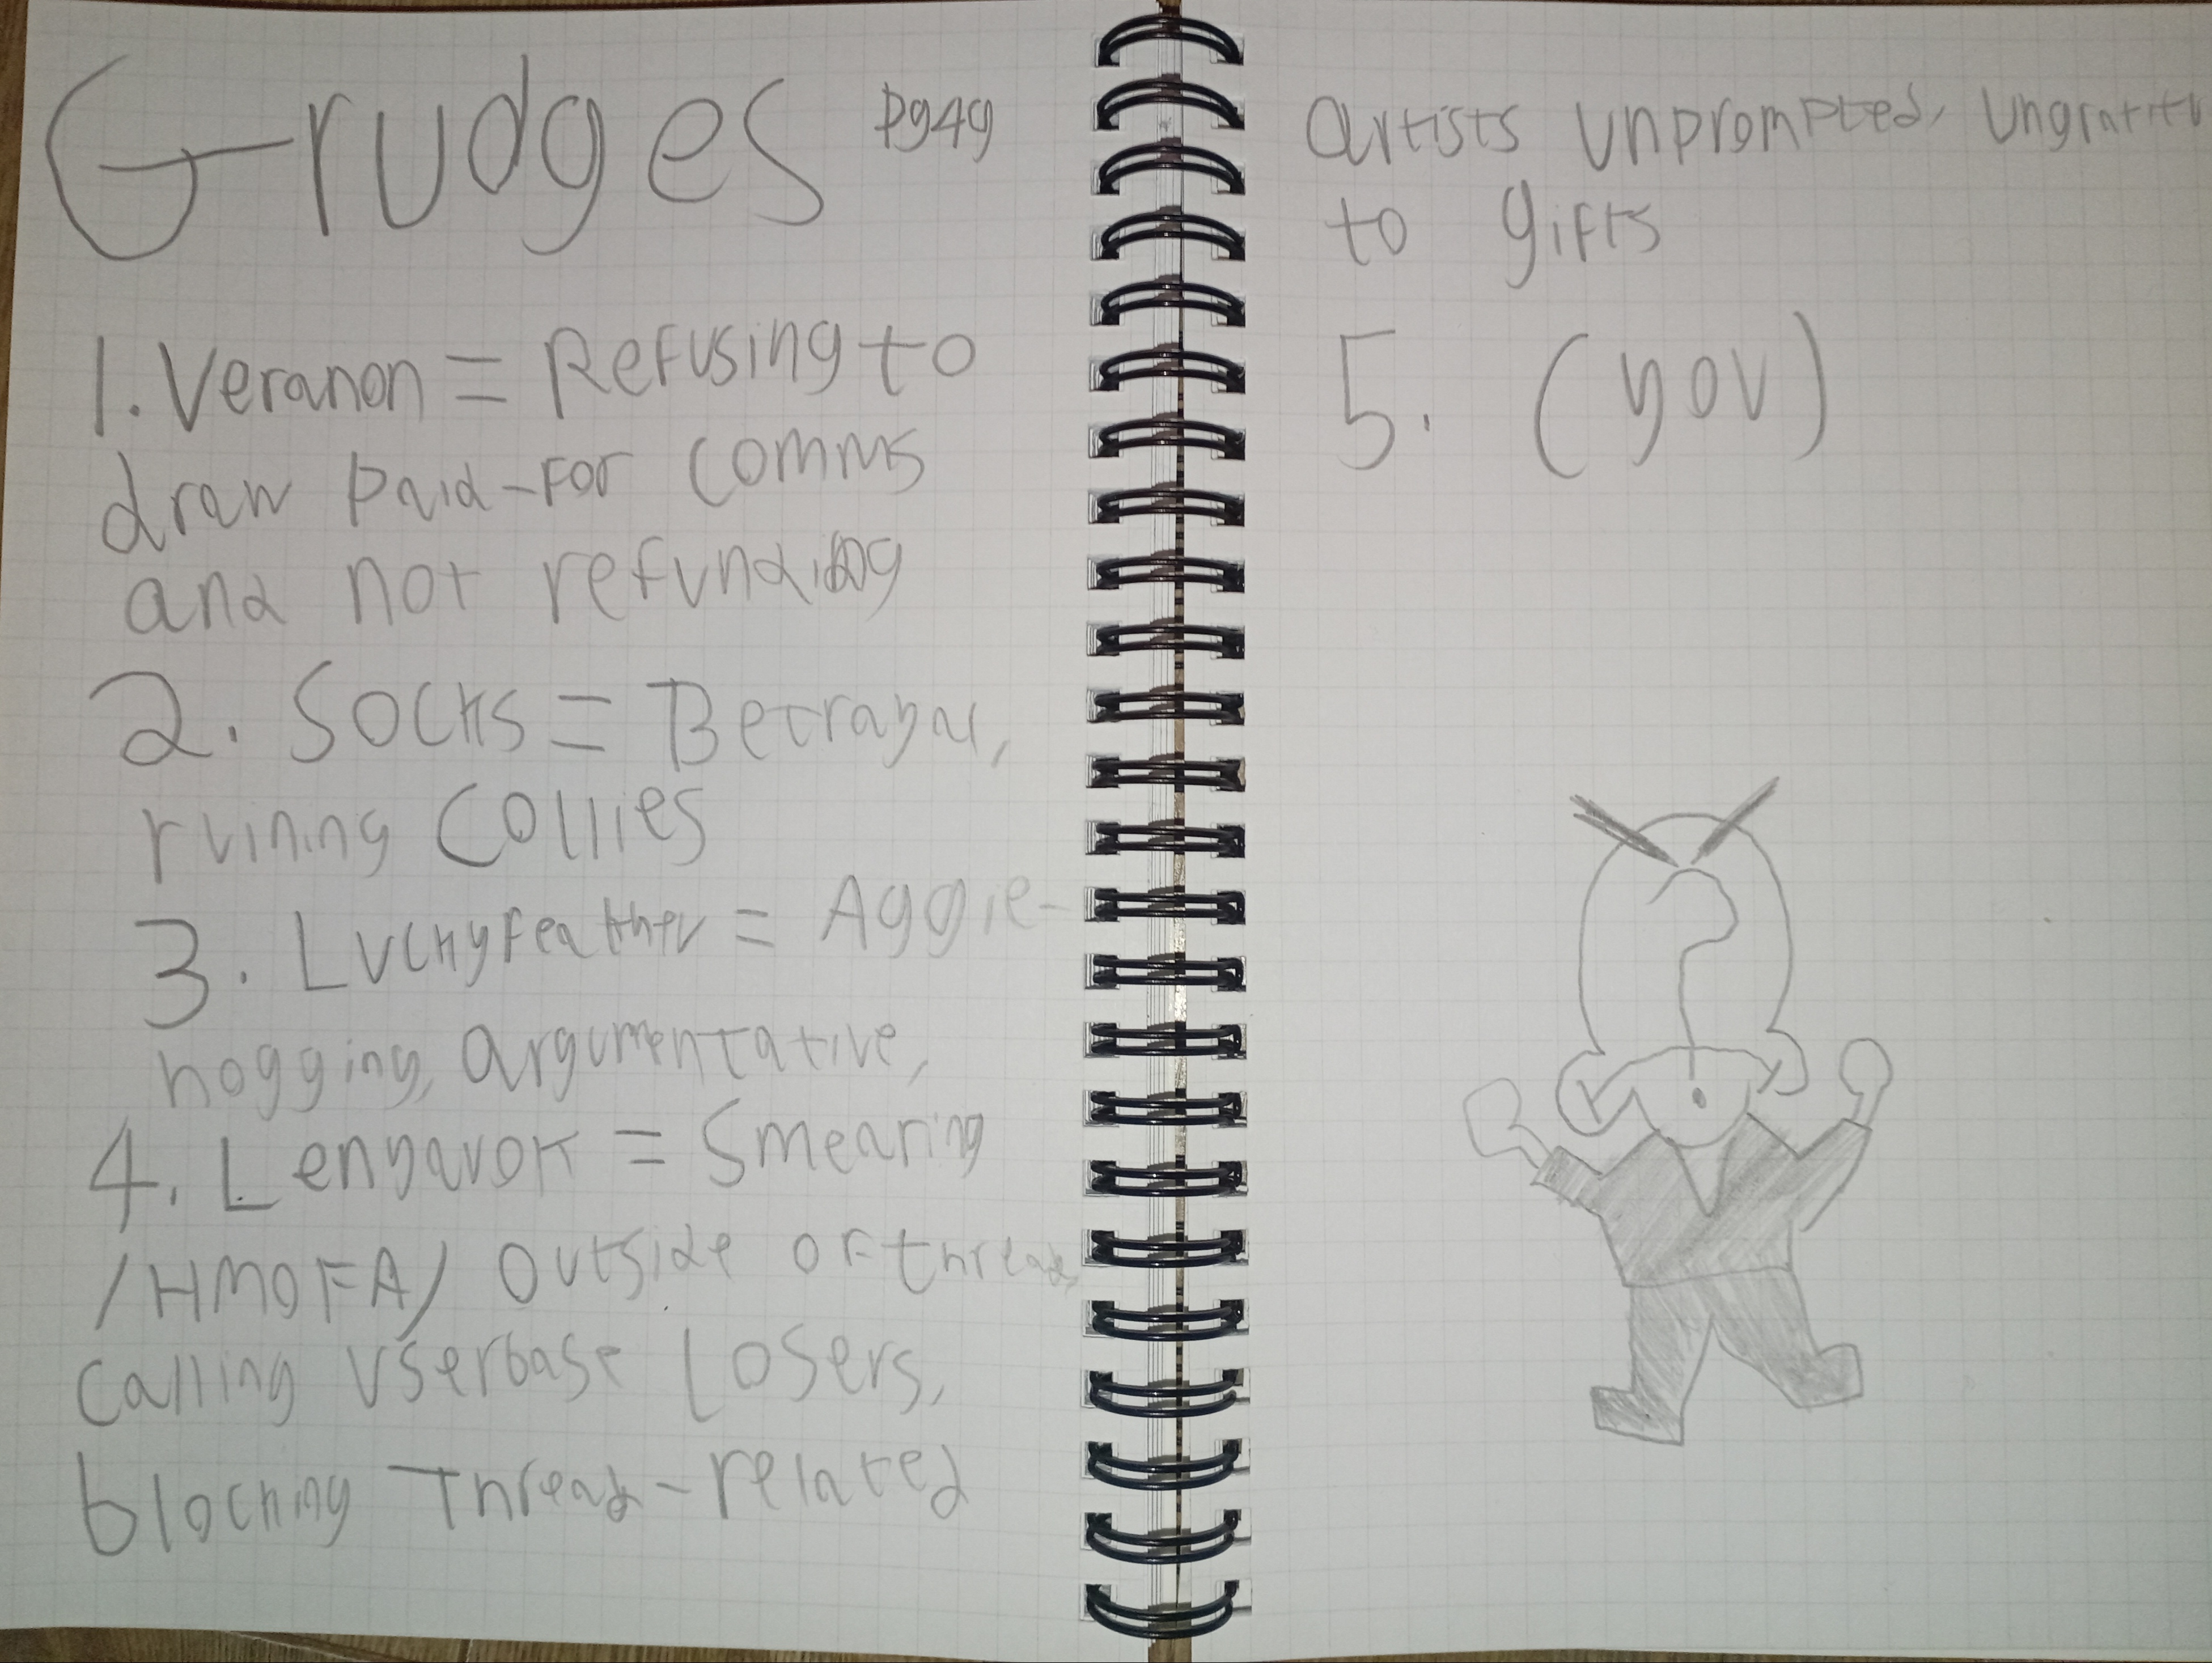 Grudges Pg49
1. Veranon = Refusing to
draw paid-for comms
and not refunding
2. Socks = Betrayal,
ruining Collies
3. Luckyfeather = Aggie-
hogging, argumentative,
4. Lengavok = Smearing
/HMOFA/ outside of thread,
calling userbase losers,
blocking Thread-related
artists unprompted,
to gifts
5. (you)